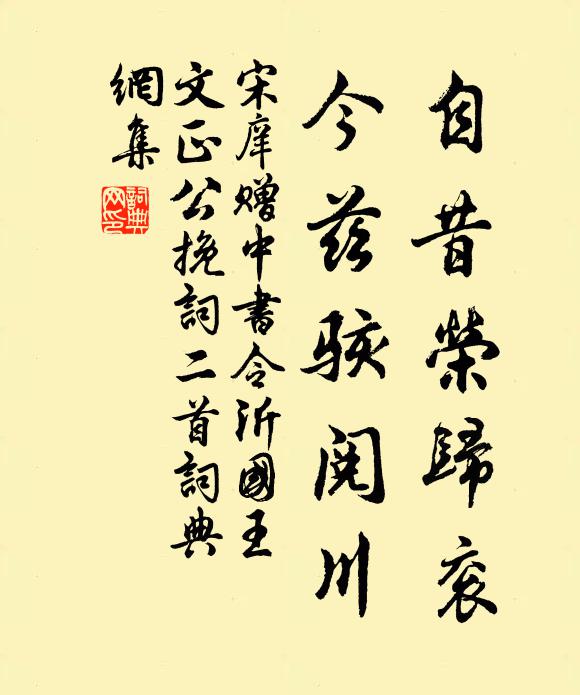 自昔榮歸衮
今兹駭閱川
宋庠赠中書令沂國王
文正公挽詞二首詞典
網集
詞典
网印